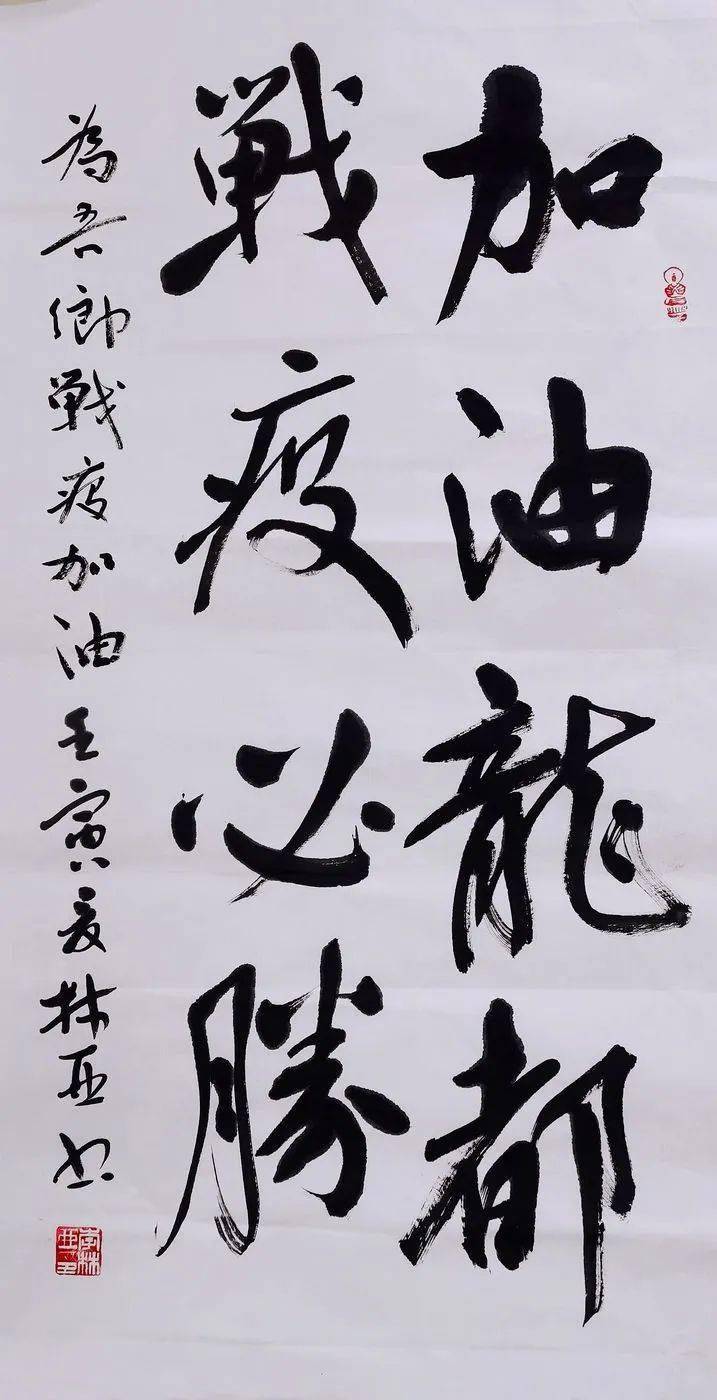 加油龍都
戰疫必勝
為吾鄉戰疫加油壬寅夏林亚书